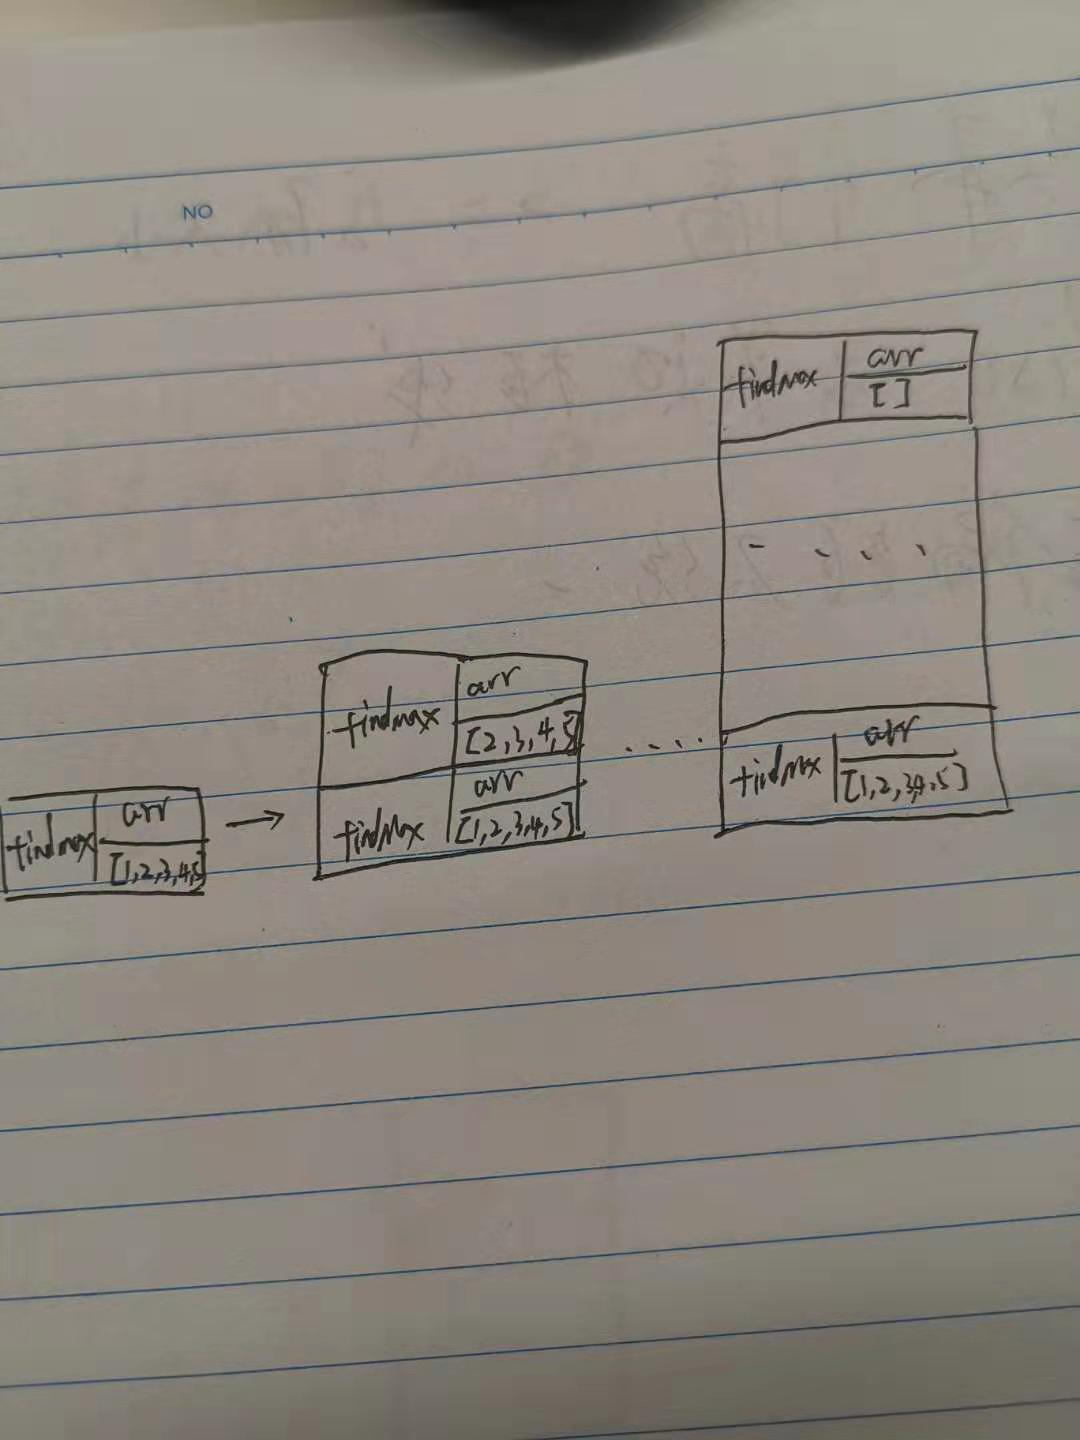 NO
findMax arr
[1,2,3,4,5]
findMax arr
[2,3,4,5]
findMax arr
[1,2,3,4,5]
.....
findMax arr
[ ]
....
findMax arr
[1,2,3,4,5]